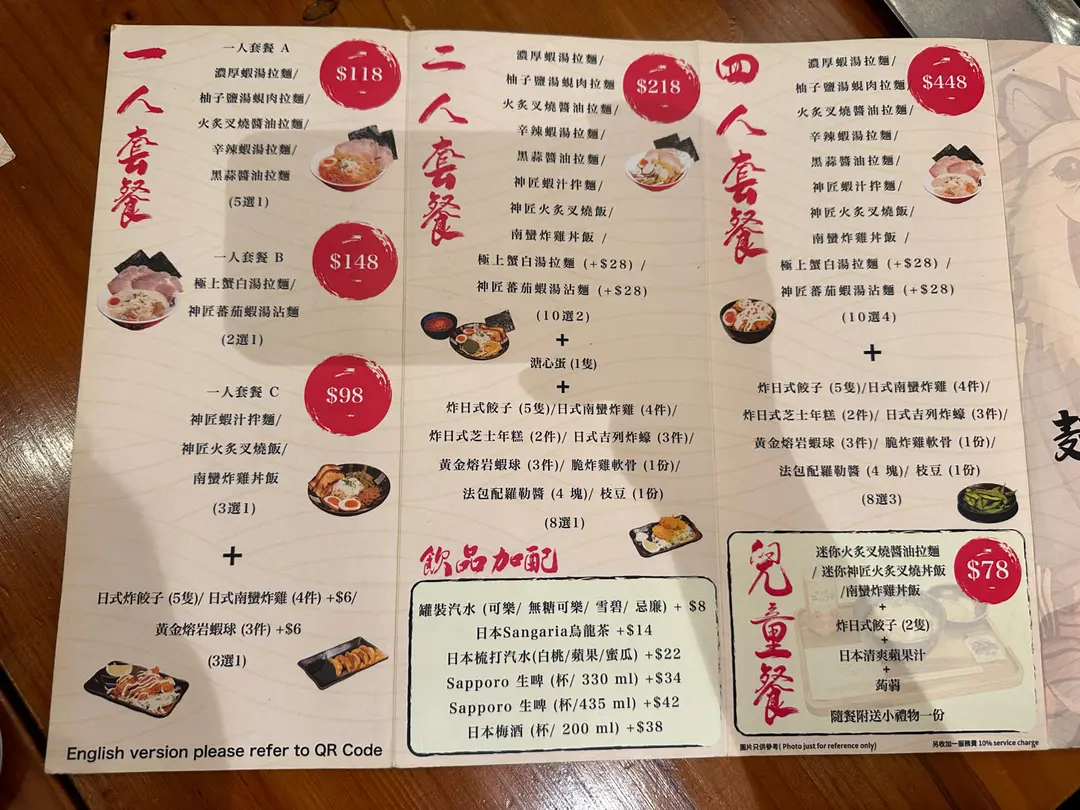 一人套餐
一人套餐 A
$118
濃厚蝦湯拉麵/
柚子鹽湯蜆肉拉麵/
火炙叉燒醬油拉麵/
辛辣蝦湯拉麵/
黑蒜醬油拉麵
(5選1)
一人套餐 B
$148
極上蟹白湯拉麵/
神匠蕃茄蝦湯沾麵
(2選1)
一人套餐 C
$98
神匠蝦汁拌麵/
神匠火炙叉燒飯/
南蠻炸雞丼飯
(3選1)
+
日式炸餃子 (5隻)/ 日式南蠻炸雞 (4件) +$6/
黃金熔岩蝦球 (3件) +$6
(3選1)
English version please refer to QR Code
二人套餐
$218
濃厚蝦湯拉麵/
柚子鹽湯蜆肉拉麵
火炙叉燒醬油拉麵/
辛辣蝦湯拉麵/
黑蒜醬油拉麵/
神匠蝦汁拌麵/
神匠火炙叉燒飯/
南蠻炸雞丼飯 /
極上蟹白湯拉麵 (+$28) /
神匠蕃茄蝦湯沾麵 (+$28)
(10選2)
+
溏心蛋 (1隻)
+
炸日式餃子 (5隻)/日式南蠻炸雞 (4件)/
炸日式芝士年糕 (2件)/ 日式吉列炸蠔 (3件)/
黃金熔岩蝦球 (3件)/ 脆炸雞軟骨 (1份)/
法包配羅勒醬 (4 塊)/ 枝豆 (1份)
(8選1)
飲品加配
罐裝汽水 (可樂/ 無糖可樂/ 雪碧/ 忌廉) + $8
日本Sangaria烏龍茶 +$14
日本梳打汽水(白桃/蘋果/蜜瓜) +$22
Sapporo 生啤 (杯/ 330 ml) +$34
Sapporo 生啤 (杯/435 ml) +$42
日本梅酒 (杯/ 200 ml) +$38
四人套餐
$448
濃厚蝦湯拉麵/
柚子鹽湯蜆肉拉麵/
火炙叉燒醬油拉麵/
辛辣蝦湯拉麵/
黑蒜醬油拉麵/
神匠蝦汁拌麵/
神匠火炙叉燒飯/
南蠻炸雞丼飯 /
極上蟹白湯拉麵 (+$28) /
神匠蕃茄蝦湯沾麵 (+$28)
(10選4)
+
炸日式餃子 (5隻)/日式南蠻炸雞 (4件)/
炸日式芝士年糕 (2件)/ 日式吉列炸蠔 (3件)/
黃金熔岩蝦球 (3件)/ 脆炸雞軟骨 (1份)/
法包配羅勒醬 (4 塊)/ 枝豆 (1份)
(8選3)
兒童餐
$78
迷你火炙叉燒醬油拉麵
/ 迷你神匠火炙叉燒丼飯
/南蠻炸雞丼飯
+
炸日式餃子 (2隻)
+
日本清爽蘋果汁
+
蒟蒻
隨餐附送小禮物一份
圖片只供參考( Photo just for reference only)
另收加一服務費 10% service charge